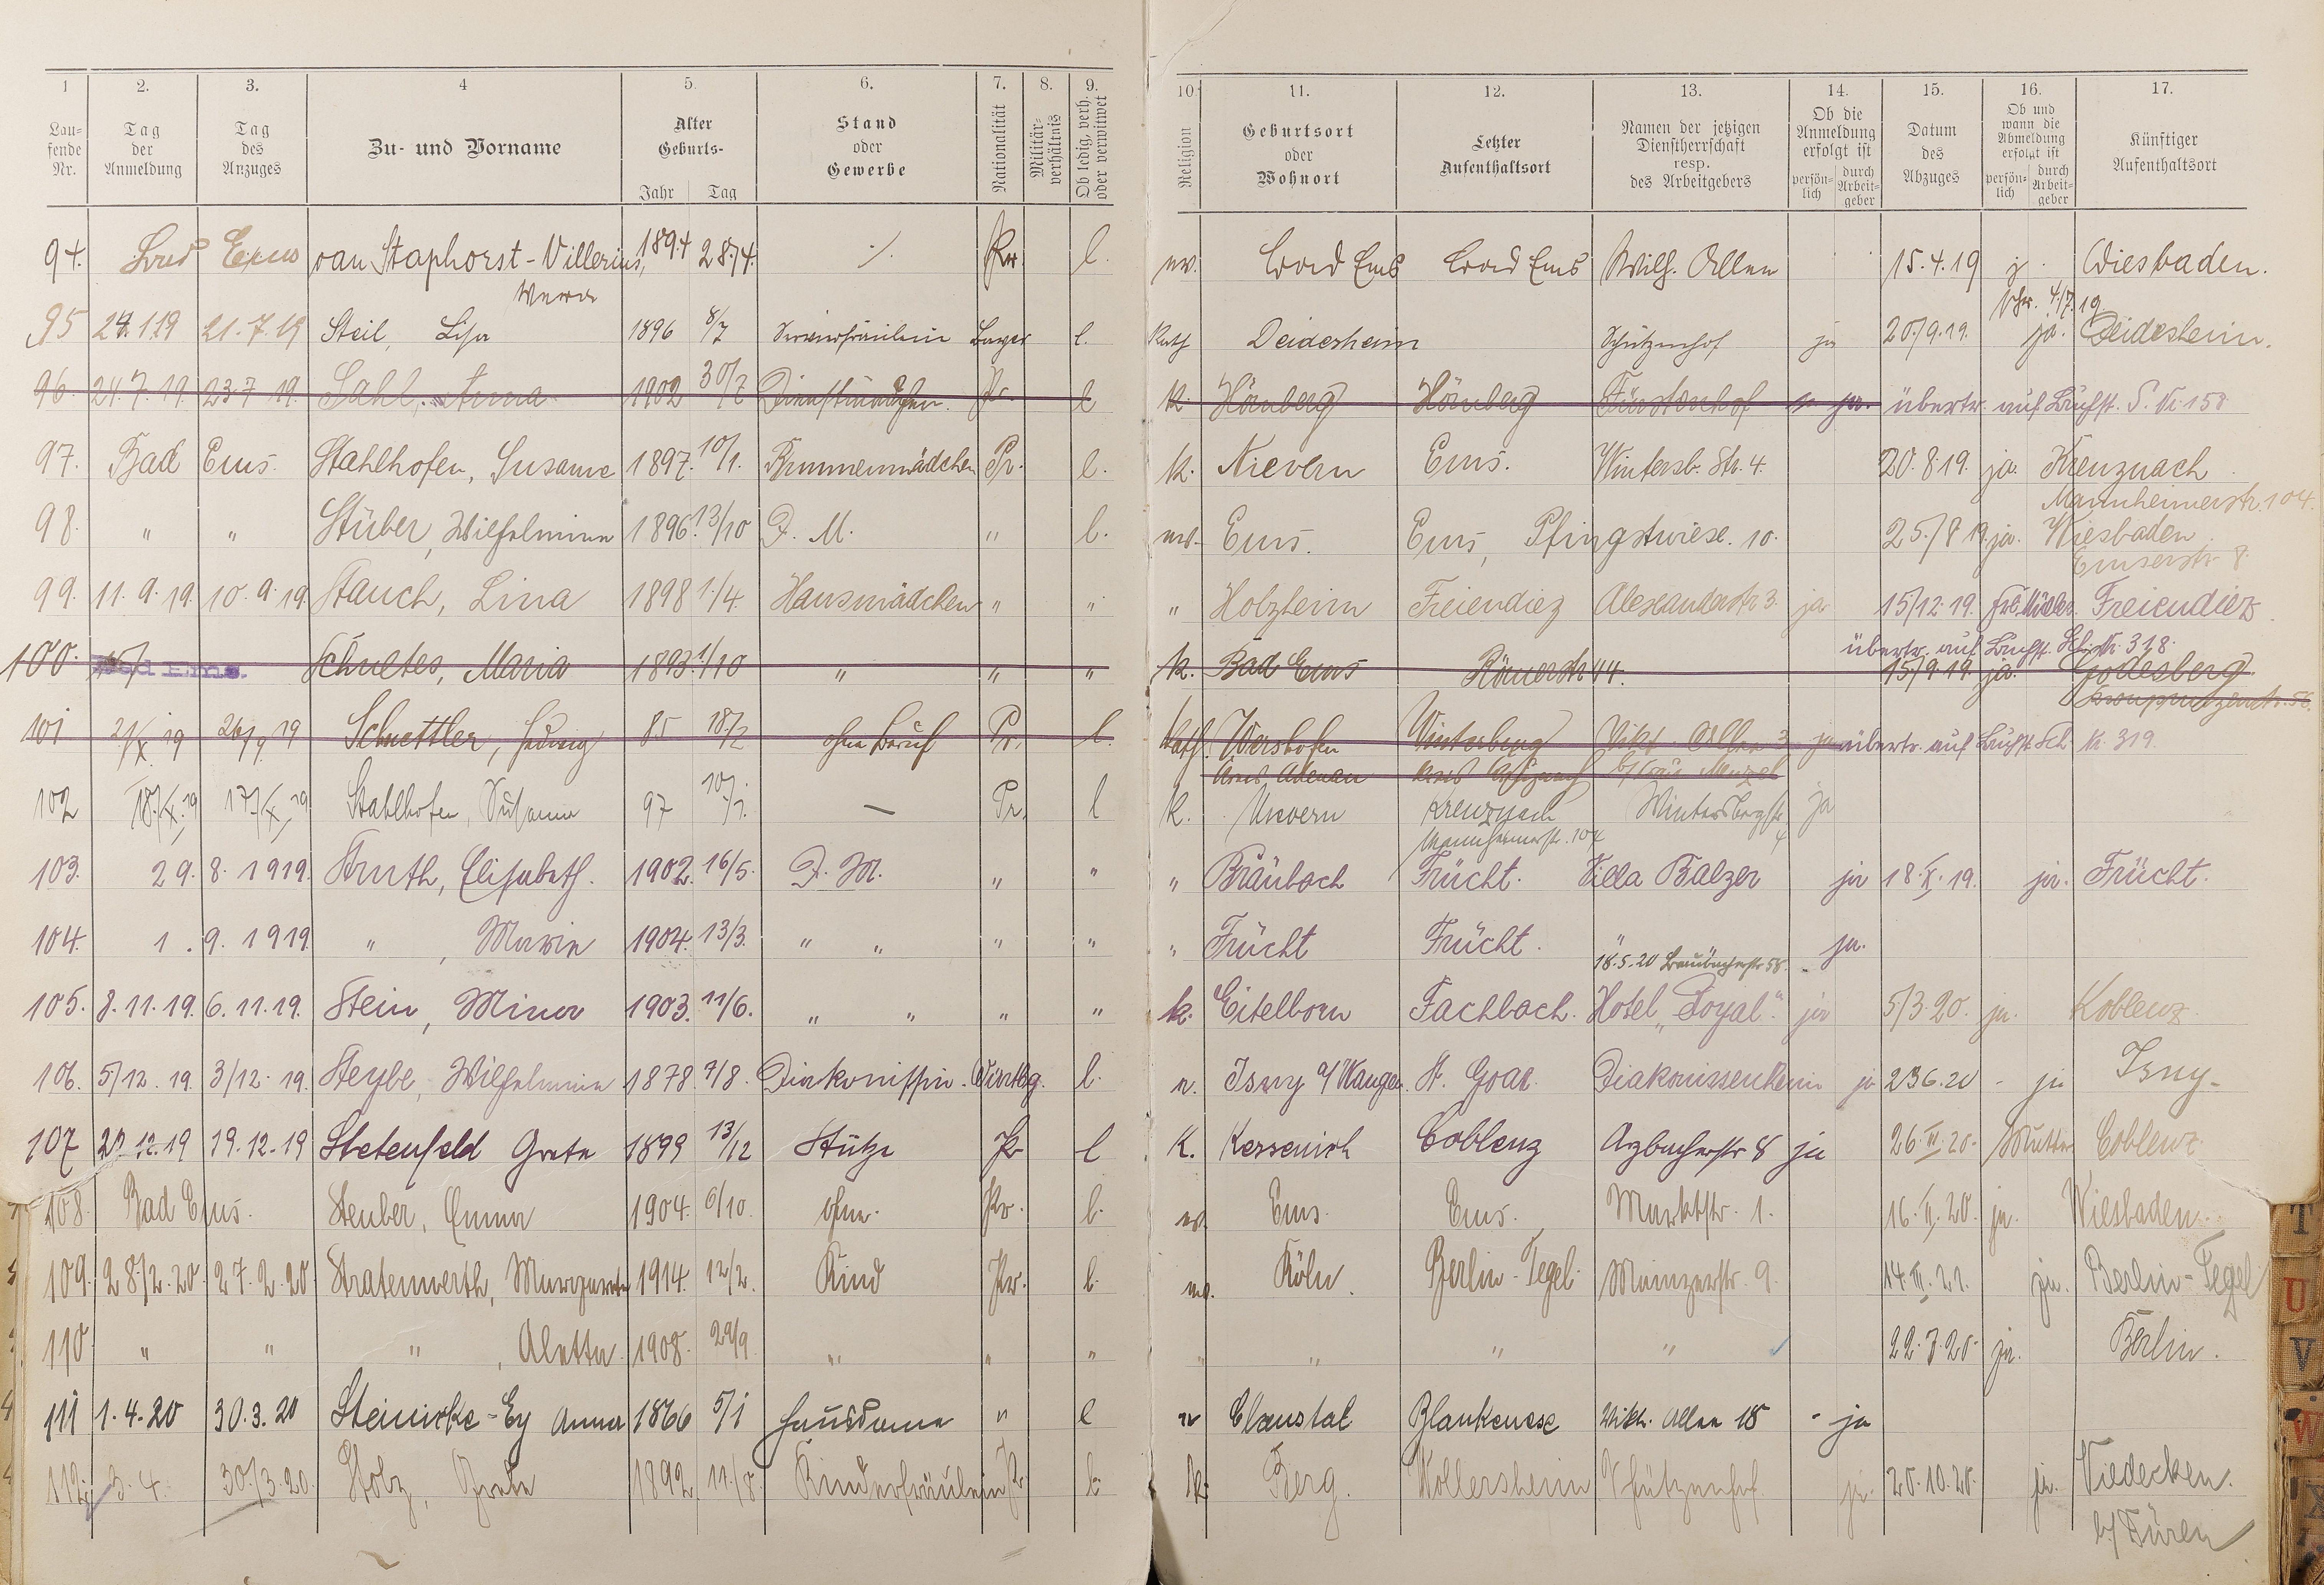 1 2. 3. 4 5. 6. 7. 8. 9. 10. 11. 12. 13. 14. 15. 16. 17.
Lau-
fende
Nr.
Tag
der
Anmeldung
Tag
des
Anzuges
Zu- und Vorname
Alter
Geburts-
Jahr Tag
Stand
oder
Gewerbe
Nationalität
Militär-
verhältnis
Ob ledig, verh.
oder verwitwet
Religion
Geburtsort
oder
Wohnort
Letzter
Aufenthaltsort
Namen der jetzigen
Dienstherrschaft
resp.
des Arbeitgebers
Ob die
Anmeldung
erfolgt ist
persön-
lich
durch
Arbeit-
geber
Datum
des
Abzuges
Ob und
wann die
Abmeldung
erfolgt ist
persön-
lich
durch
Arbeit-
geber
Künftiger
Aufenthaltsort
94. Bad Ems van Staphorst-Villerius, 1894 28/4. ./. Pr. l. ev. Bad Ems Bad Ems Wilh. Allee 15.4.19 j. Wiesbaden.
4/7.19.
95 21.7.19 Steil, Lisa 1896 8/7 Servierfräulein Bayer l. Kath Deidesheim Schützenhof ja 20/9.19. ja. Deidesheim.
96. 24.7.19. 23.7.19. Sahl, Anna 1902 30/7 Dienstmädchen. Pr. l k. Hömberg Hömberg Fürstenhof ja. übertr. auf Buchst. S. Nr. 158
97. Bad Ems. Stahlhofen, Susanne 1897. 10/1. Brunnenmädchen Pr. l. k. Nievern Ems. Wintersb. Str. 4. 20.8.19. ja. Kreuznach
Mannheimerstr. 104.
98. " " Stüber, Wilhelmine 1896. 13/10 D. M. " l. ev. Ems. Ems, Pfingstwiese. 10. 25./8 19. ja. Wiesbaden
Emserstr 8.
99. 11.9.19. 10.9.19. Stauch, Lina 1898 1./4. Hausmädchen " " " Holzheim Freiendiez Alexanderstr 3. ja 15/12.19. Frl. Müller. Freiendiez
übertr. auf Buchst. Sch Nr. 318.
100. Bad Ems. Schultes, Maria 1893. 1/10 " " " k. Bad Ems Römerstr 44. 15/9.19. ja. Godesberg.
Kronprinzenstr. 56.
101 19 19 Schnettler, Hedwig 85 18/2 ohne Beruf Pr. l. kath. Wershofen Winterberg Vikt. Allee 3 ja übertr. auf Buchst. Sch Nr. 319.
Kreis Adenau b/ Frau Menzel
102 18./X.19 17./X.19 Stahlhofen, Susanne 97 10/1. — Pr. l k. Nievern Kreuznach Wintersbergstr 4 ja
Mannheimerstr. 104
103. 29.8.1919. Struth, Elisabeth. 1902. 16/5. D. M. " " " Braubach Frücht. Villa Balzer ja 18.X.19. ja. Frücht.
104. 1.9.1919 " , Maria 1904. 13/3. " " " " " Frücht Frücht. " ja.
18.5.20 Braubacherstr 58.
105. 8.11.19. 6.11.19. Stein, Mina 1903. 11/6. " " " " k. Eitelborn Fachbach. Hotel „Royal". ja 5/3.20. ja. Koblenz.
106. 5/12.19. 3/12.19. Steybe, Wilhelmine 1878 9/8. Diakonissin. Württbg. l. ev. Isny a/Wangen. St. Goar. Diakonissenheim ja 23.6.20 - ja Isny.
107 20.12.19 19.12.19 Stetenfeld Grete 1899 13/12 Stütze Pr l K. Kessenich Coblenz Arzbacherstr 8 ja 26.III.20. Mutter Coblenz.
108. Bad Ems. Steuber, Emma 1904. 6/10. ohne. Pr. l. ev. Ems. Ems. Marktstr. 1. 16.II.20. ja. Wiesbaden.
109. 28/2.20. 27.2.20. Stratenwerth, Margarete 1914. 12/2. Kind Pr. l. ev. Köln. Berlin-Tegel. Mainzerstr. 9. 14.III.21. ja. Berlin-Tegel
110 " " " , Aletta 1908. 29/9. " " " " " " " 22.7.20. ja. Berlin.
111 1.4.20 30.3.20 Steinicke-Ey Anna 1866 5/1 Hausdame " l ev Claustal Blankenese Vikt. Allee 18 - ja
112. 3.4. 30./3.20. Stolz, Grete 1892 11./8. Kinderfräulein Pr l. k. Berg. Wollersheim Schützenhof. ja. 20.10.20. ja. Viedecken.
b/ Düren
T
U
V
W
X